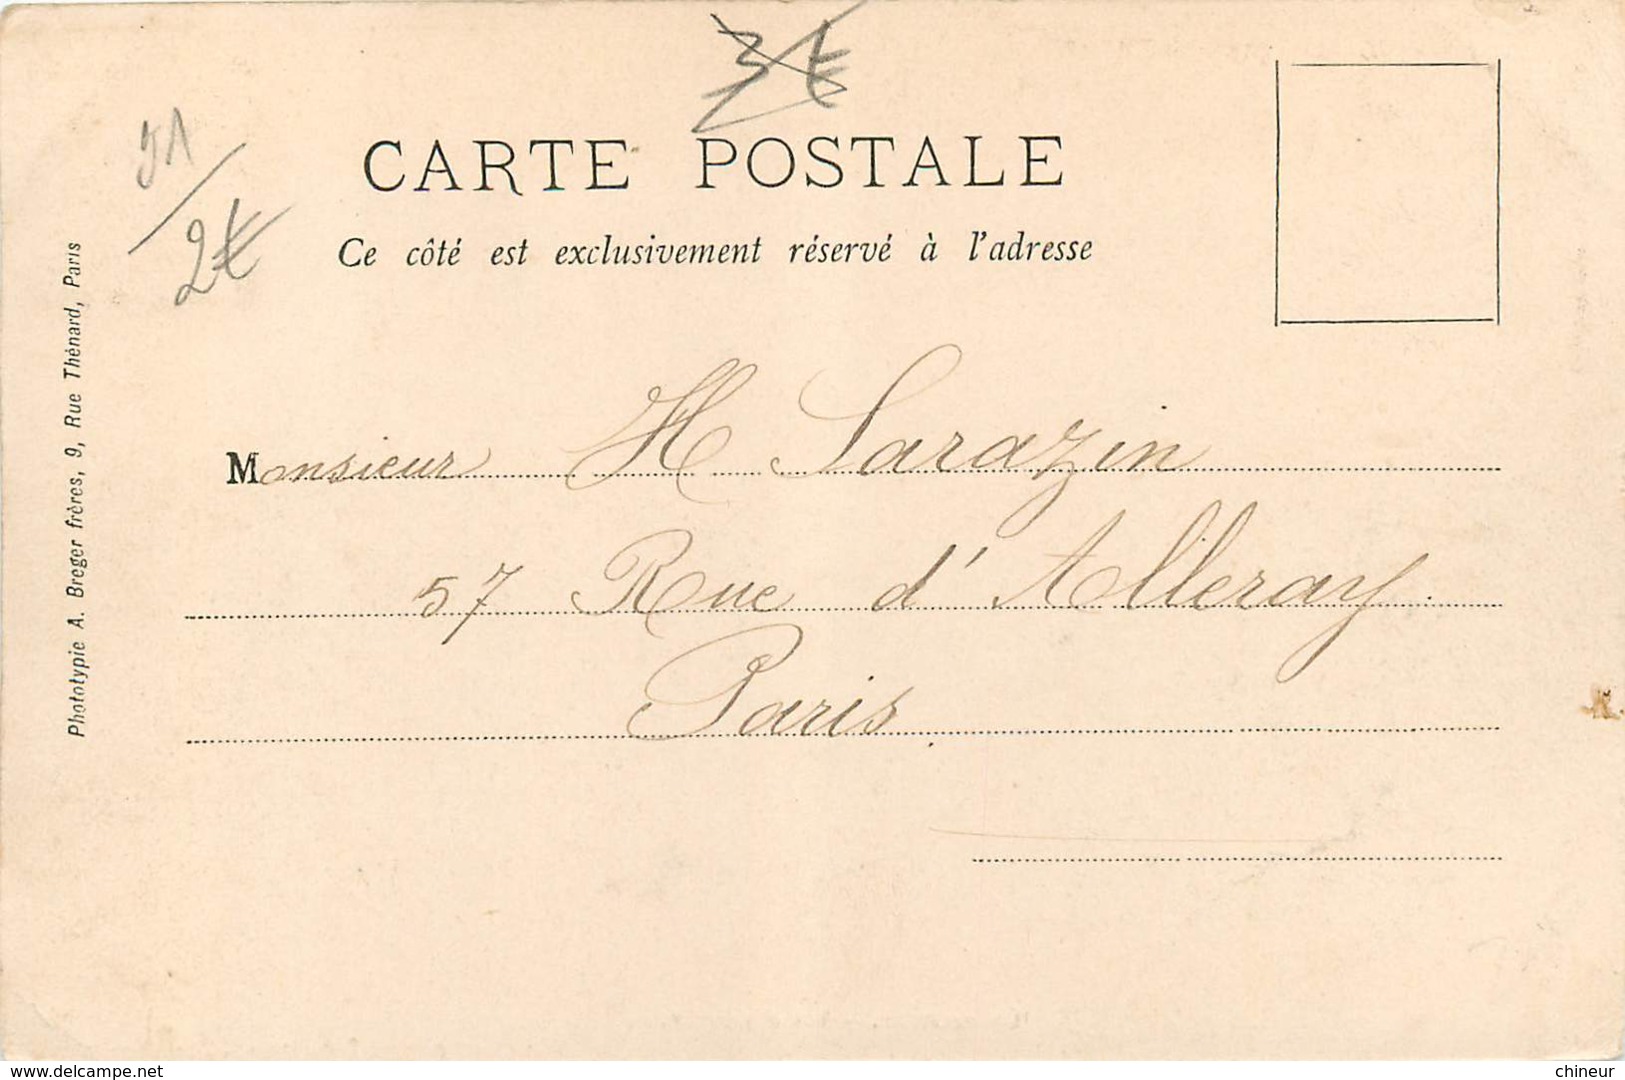 3€
91
2€
CARTE POSTALE
Ce côté est exclusivement réservé à l'adresse
Phototypie A. Breger frères, 9, Rue Thénard, Paris
Monsieur H Sarazin
57 Rue d'Alleray.
Paris
www.delcampe.net
chineur